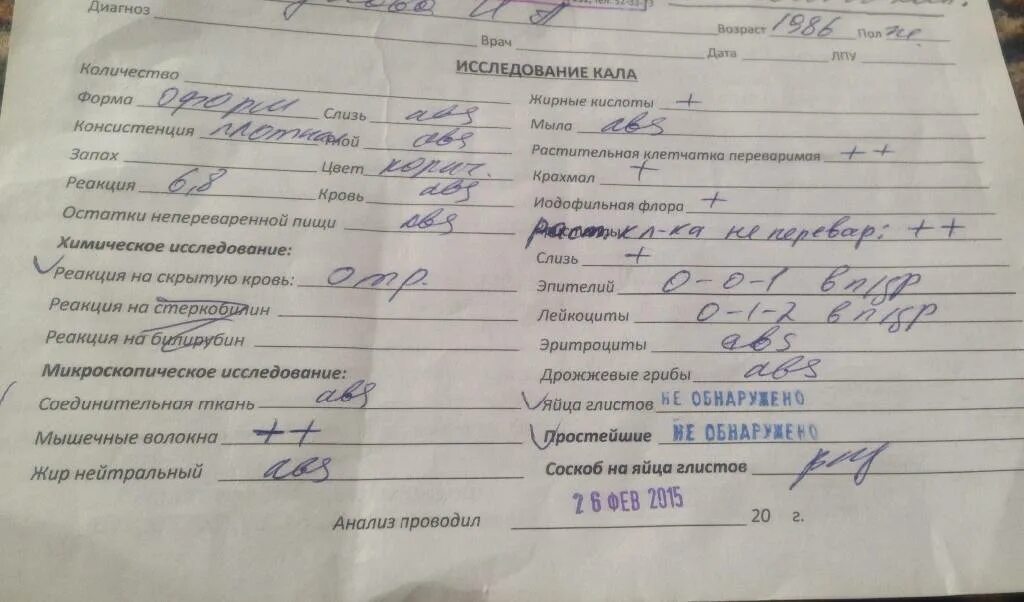 Диагноз
Возраст 1986 Пол ж.
Врач Дата ЛПУ
ИССЛЕДОВАНИЕ КАЛА
Количество
Форма оформ Слизь abs
Консистенция плотная Гной abs
Запах Цвет корич.
Реакция 6,8 Кровь abs
Остатки непереваренной пищи abs
Химическое исследование:
Реакция на скрытую кровь: отр.
Реакция на стеркобилин
Реакция на билирубин
Микроскопическое исследование:
Соединительная ткань abs
Мышечные волокна ++
Жир нейтральный abs
Жирные кислоты +
Мыла abs
Растительная клетчатка переваримая ++
Крахмал +
Иодофильная флора +
Раст. кл-ка неперевар: ++
Слизь +
Эпителий 0-0-1 в п/зр
Лейкоциты 0-1-2 в п/зр
Эритроциты abs
Дрожжевые грибы abs
Яйца глистов НЕ ОБНАРУЖЕНО
Простейшие НЕ ОБНАРУЖЕНО
Соскоб на яйца глистов
26 ФЕВ 2015
Анализ проводил 20 г.